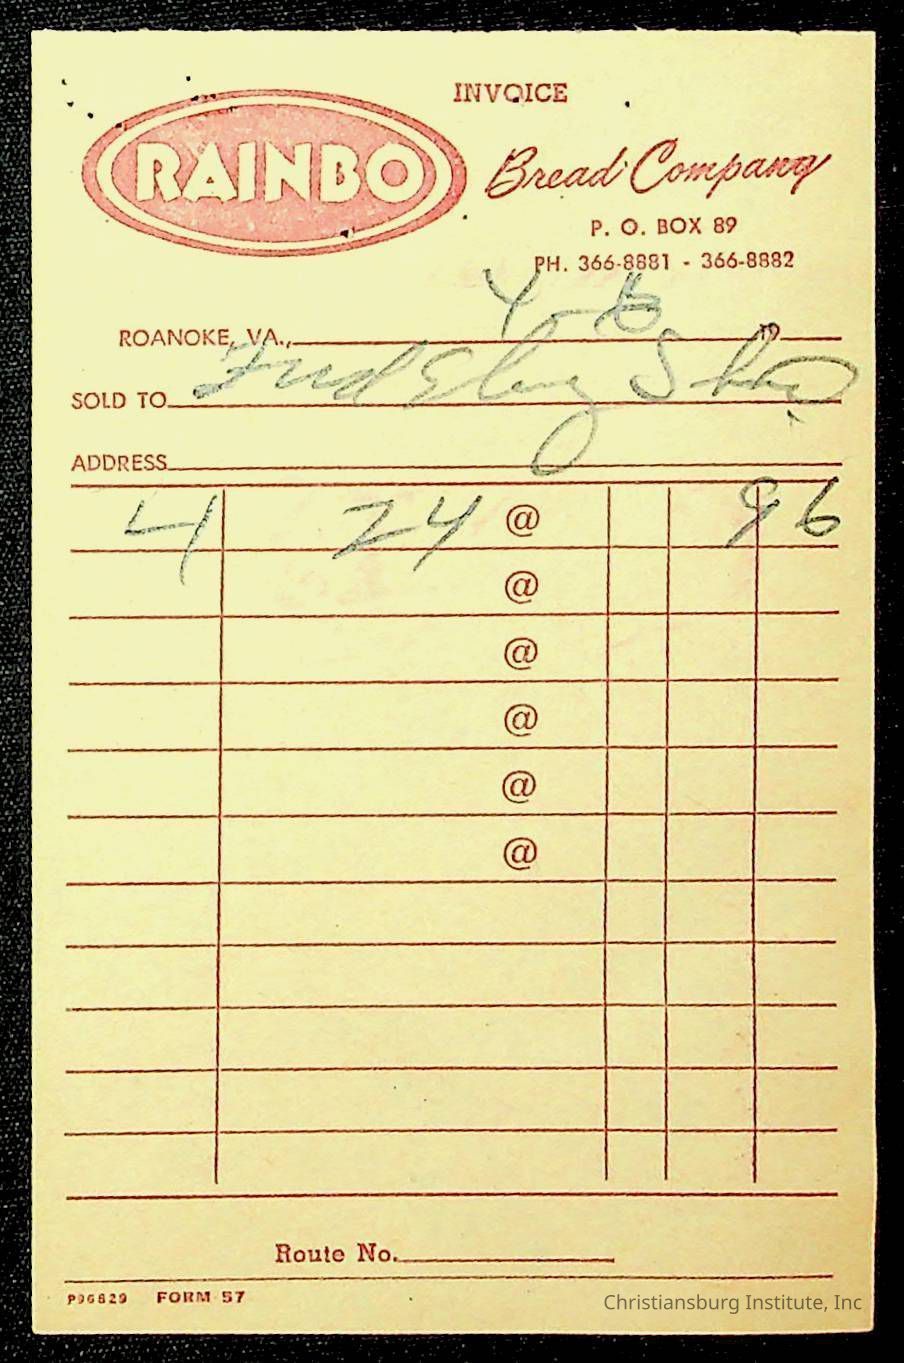 INVOICE
RAINBO
Bread Company
P. O. BOX 89
PH. 366-8881 - 366-8882
4-6
ROANOKE, VA., 19
SOLD TO
ADDRESS
4 24 @ 96
@
@
@
@
@
Route No.
P96829 FORM 57
Christiansburg Institute, Inc